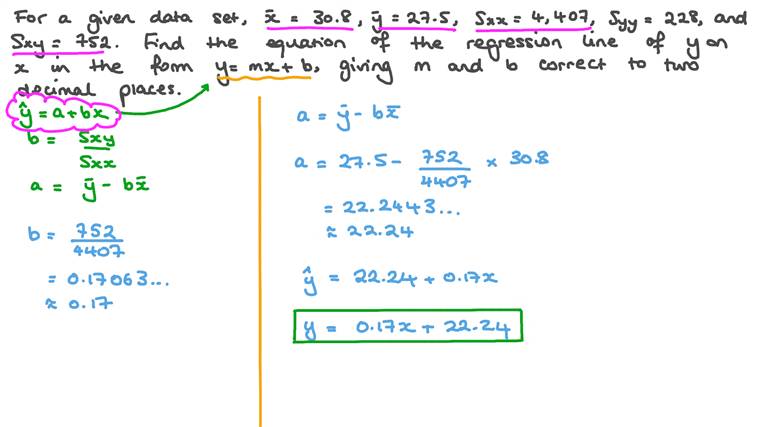 For a given data set, x̄ = 30.8, ȳ = 27.5, Sxx = 4,407, Syy = 228, and
Sxy = 752. Find the equation of the regression line of y on
x in the form y = mx + b, giving m and b correct to two
decimal places.
ŷ = a + bx
b = Sxy/Sxx
a = ȳ - bx̄
b = 752/4407
= 0.17063...
≈ 0.17
a = ȳ - bx̄
a = 27.5 - 752/4407 × 30.8
= 22.2443...
≈ 22.24
ŷ = 22.24 + 0.17x
y = 0.17x + 22.24